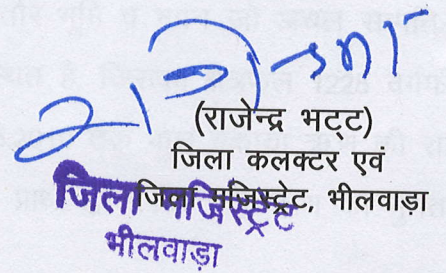 (राजेन्द्र भट्ट)
जिला कलक्टर एवं
जिला मजिस्ट्रेट, भीलवाड़ा
जिला मजिस्ट्रेट
भीलवाड़ा